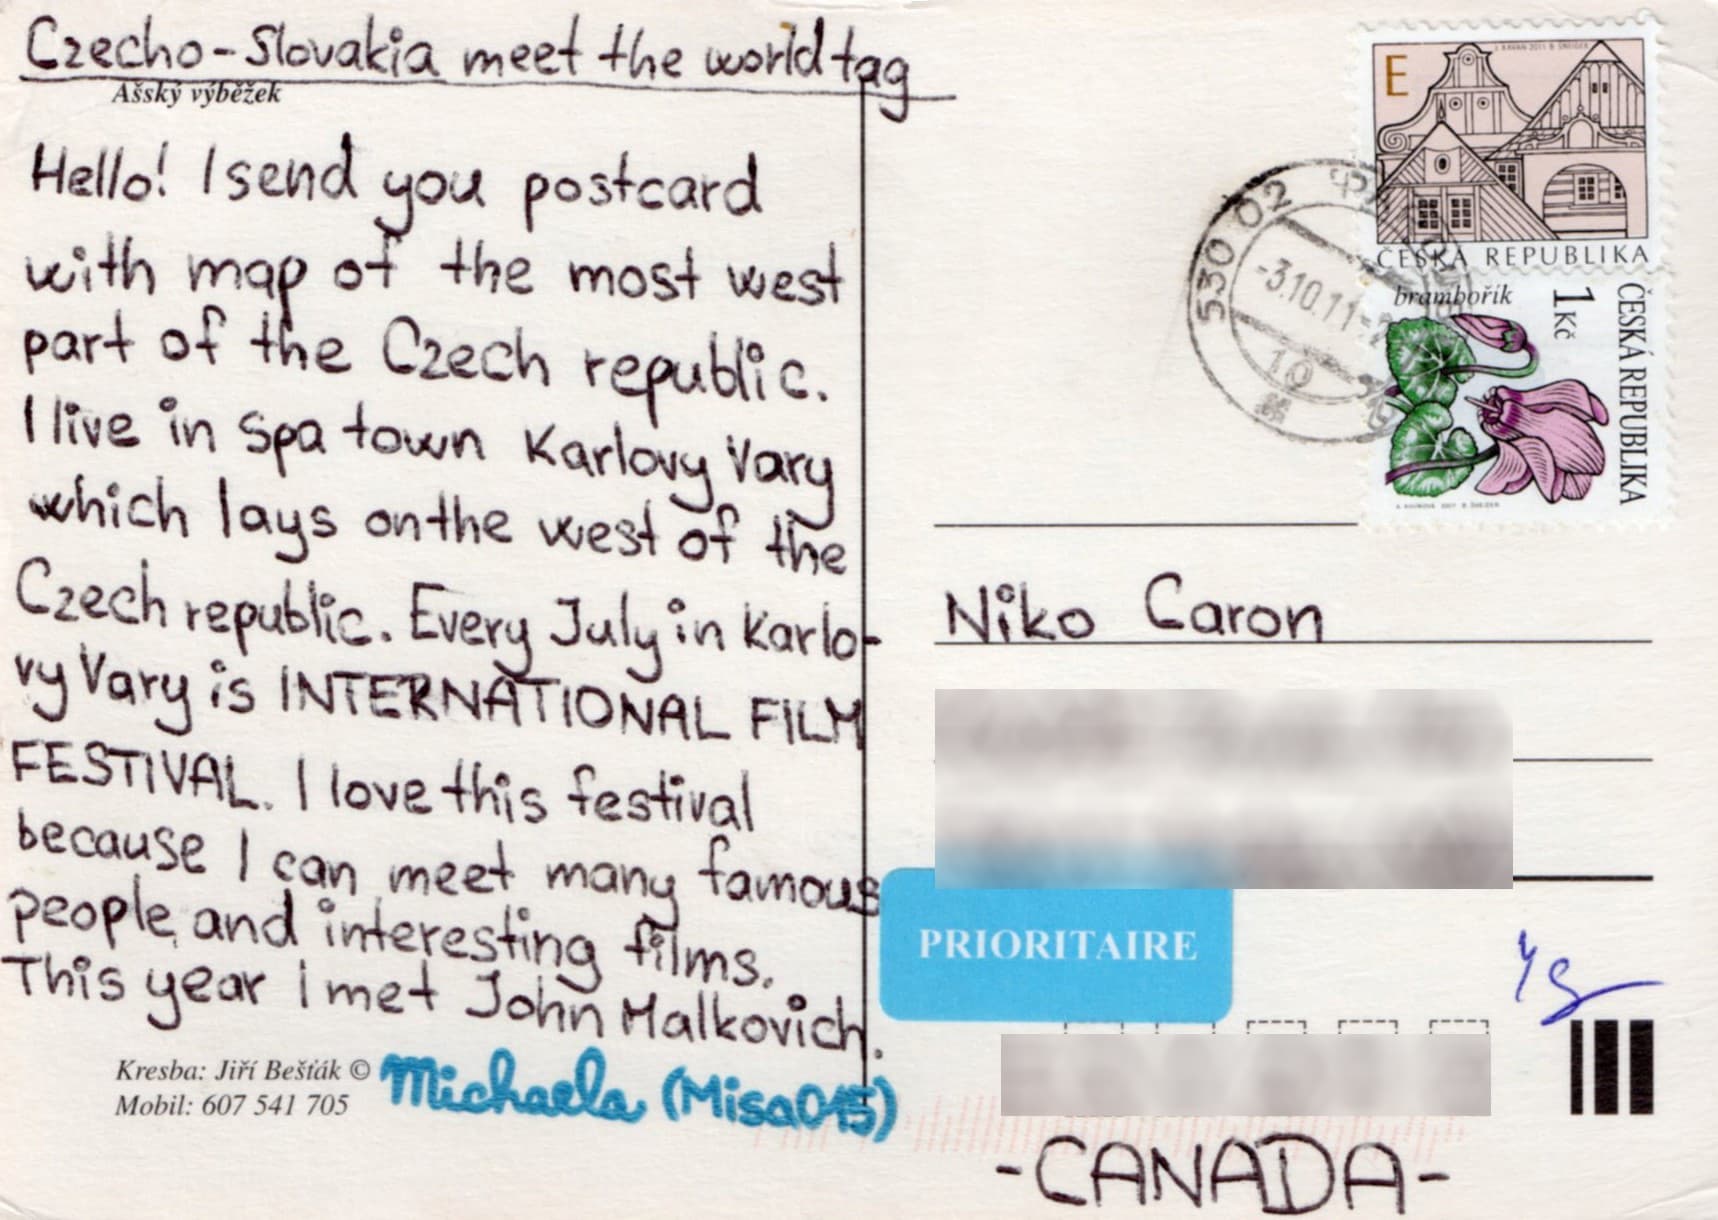 Czecho-Slovakia meet the world tag
Ašský výběžek
Hello! I send you postcard
with map of the most west
part of the Czech republic.
I live in spa town Karlovy Vary
which lays on the west of the
Czech republic. Every July in Karlo-
vy Vary is INTERNATIONAL FILM
FESTIVAL. I love this festival
because I can meet many famous
people and interesting films.
This year I met John Malkovich.
Kresba: Jiří Bešťák ©
Mobil: 607 541 705
Michaela (Misa015)
E
ČESKÁ REPUBLIKA
brambořík
1 Kč
ČESKÁ REPUBLIKA
530 02
-3.10.11
10
Niko Caron
PRIORITAIRE
-CANADA-